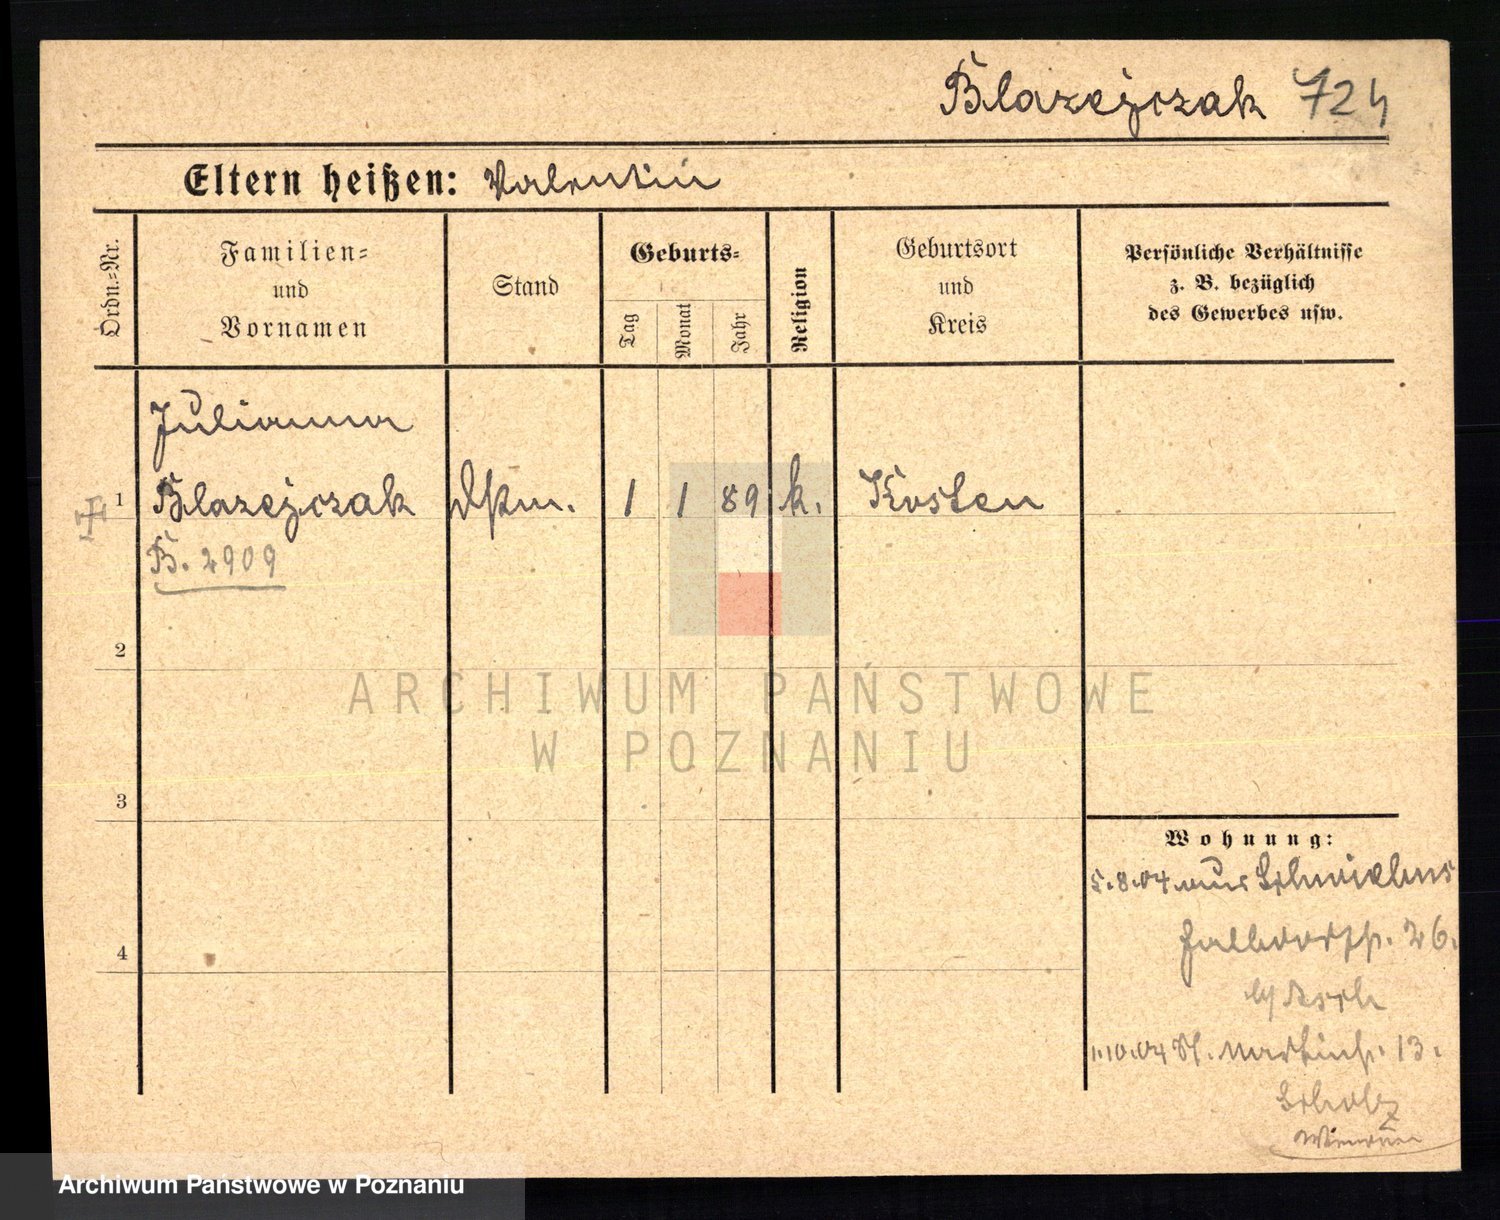 Blazejczak 724
Eltern heißen: Valentin
Ordn.-Nr.
Familien-
und
Vornamen
Stand
Geburts-
Tag
Monat
Jahr
Religion
Geburtsort
und
Kreis
Persönliche Verhältnisse
z. B. bezüglich
des Gewerbes usw.
Julianna
1 Blazejczak Dstm. 1 1 89 k. Kosten
B. 2909
2
3
4
ARCHIWUM PAŃSTWOWE
W POZNANIU
Wohnung:
5.8.04 aus
26.
b/ Asch
1.10.04 St. Martinstr. 13.
Scholz
Archiwum Państwowe w Poznaniu